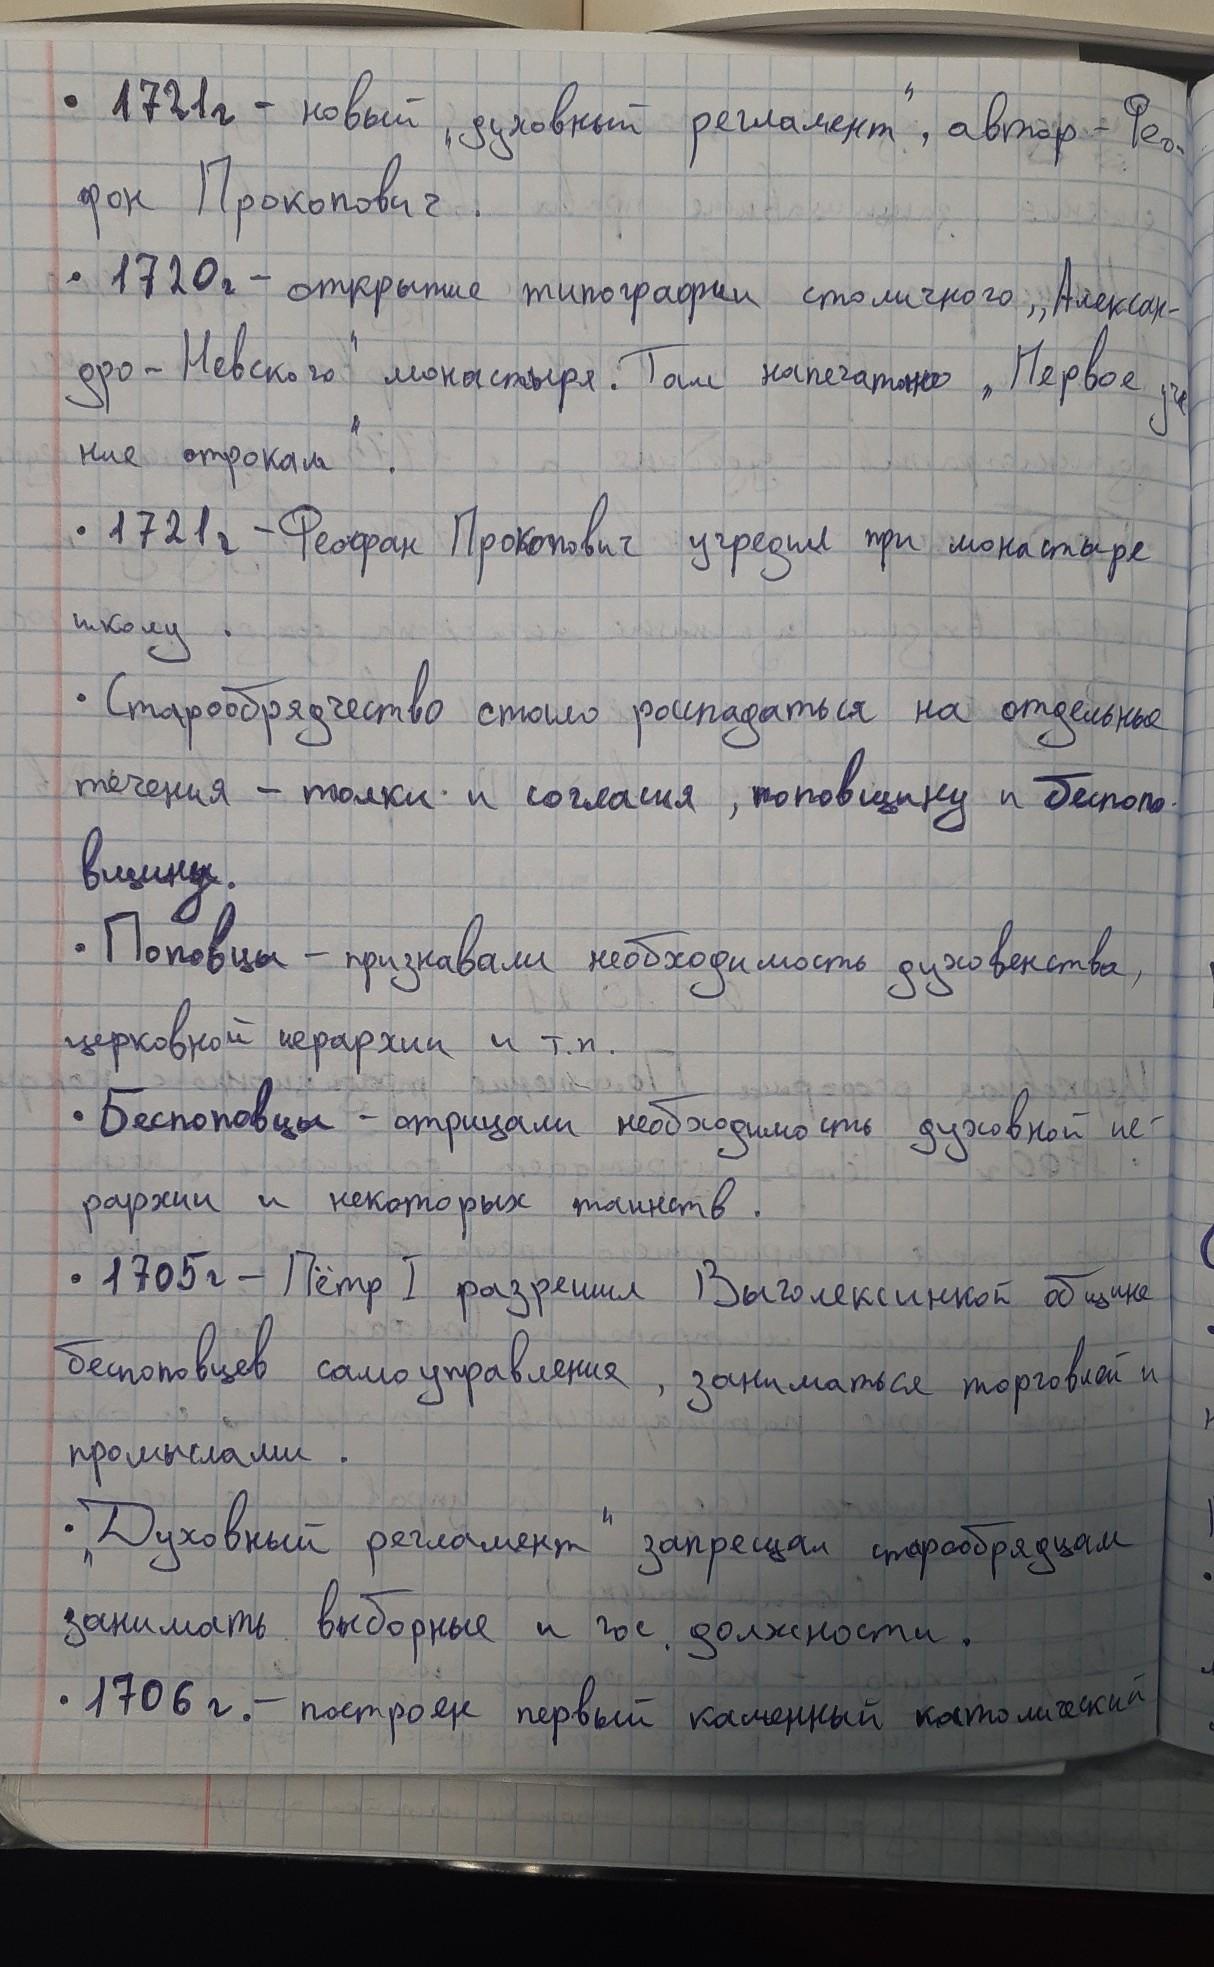 • 1721г – новый „духовный регламент“, автор – Фео-
фон Прокопович.
• 1720г – открытие типографии столичного „Алексан-
дро-Невского“ монастыря. Там напечатано „Первое уче
ние отрокам“.
• 1721г – Феофан Прокопович учредил при монастыре
школу.
• Старообрядчество стало распадаться на отдельные
течения – толки и согласия, поповщину и беспопо-
вщину.
• Поповцы – признавали необходимость духовенства,
церковной иерархии и т.п.
• Беспоповцы – отрицали необходимость духовной ие-
рархии и некоторых таинств.
• 1705г – Пётр I разрешил Выголексинкой общине
беспоповцев самоуправления, заниматься торговлей и
промыслами.
• „Духовный регламент“ запрещал старообрядцам
занимать выборные и гос. должности.
• 1706 г. – построен первый каменный католический